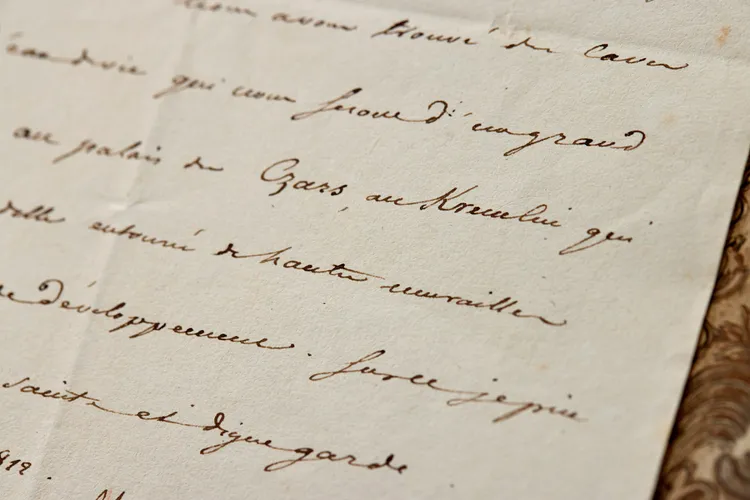 nous avons trouvé des caves
eau de vie qui nous seront d'un grand
au palais des Czars, au Kremlin qui
delle entouré de hautes murailles
de développement. Sur ce je prie
sainte et digne garde
812.